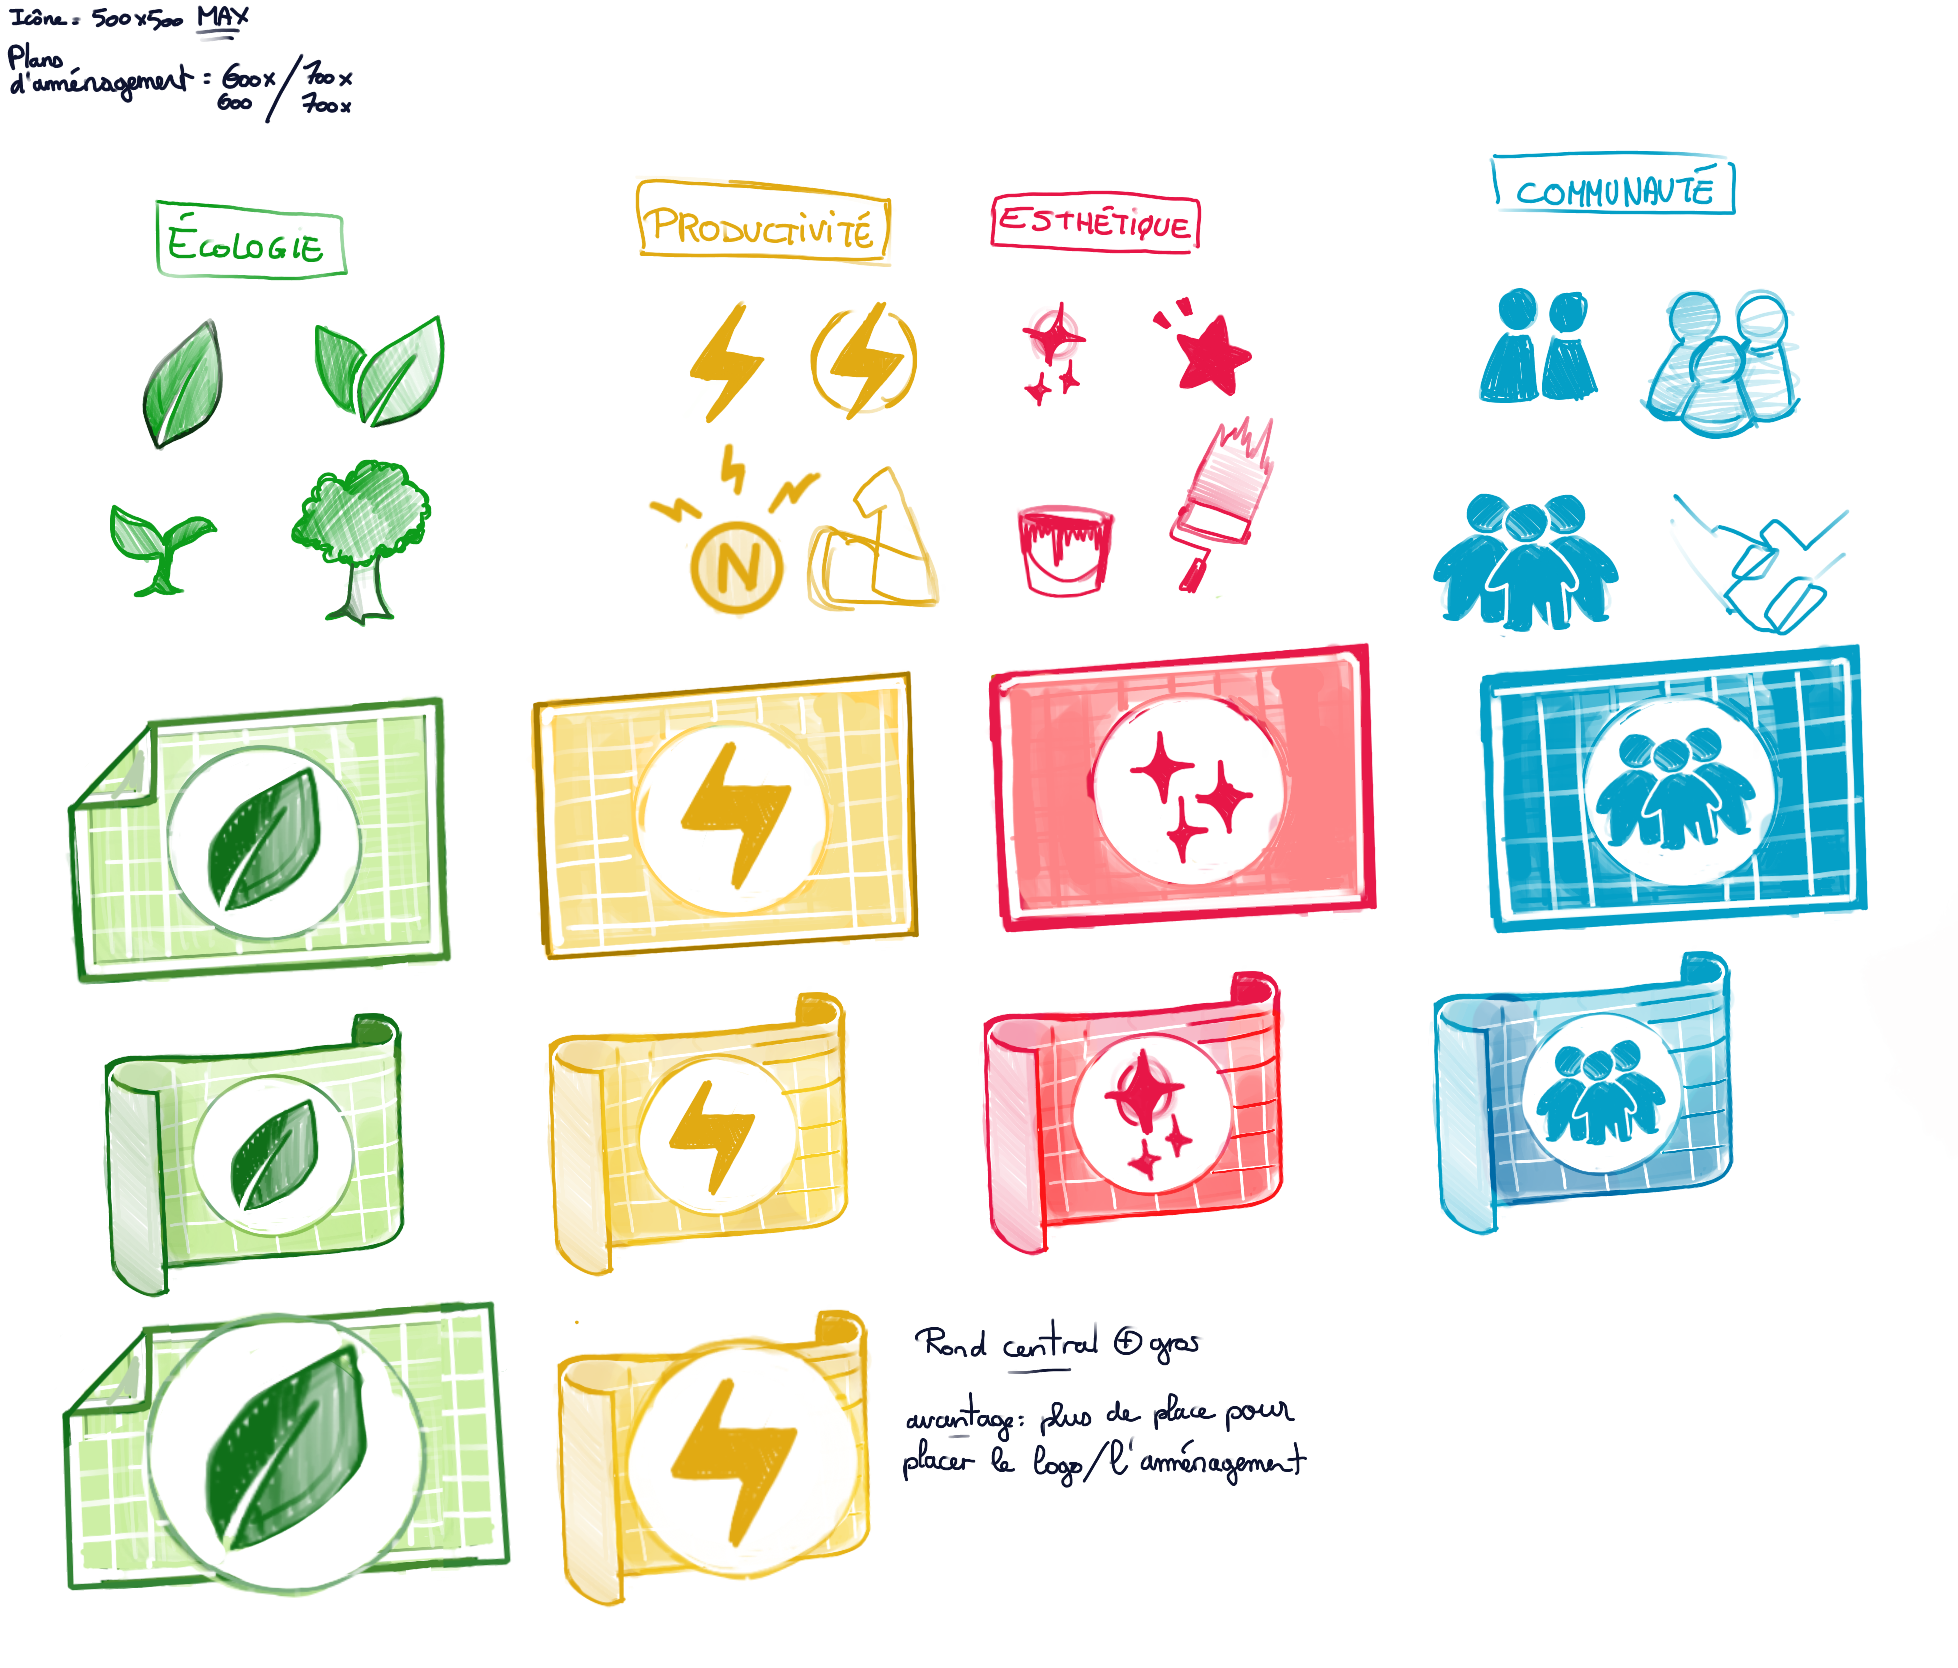 Icône = 500x500 MAX
Plans
d'aménagement = 600x / 700x
600 700x
ÉCOLOGIE
PRODUCTIVITÉ
ESTHÉTIQUE
COMMUNAUTÉ
N
Rond central + gros
avantage: plus de place pour
placer le logo/l'aménagement